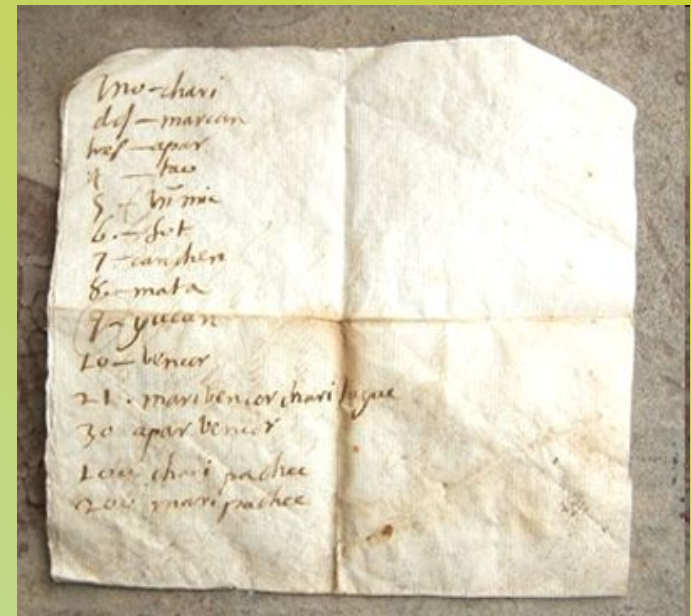 Uno - chari
dos - marian
tres - apar
4 - tau
5 -
6. - sut
7 - canchen
8. - mata
9 - yucan
10 - bencor
21. maribencor chari
30 apar bencor
100 chari pachac
200 mari pachac